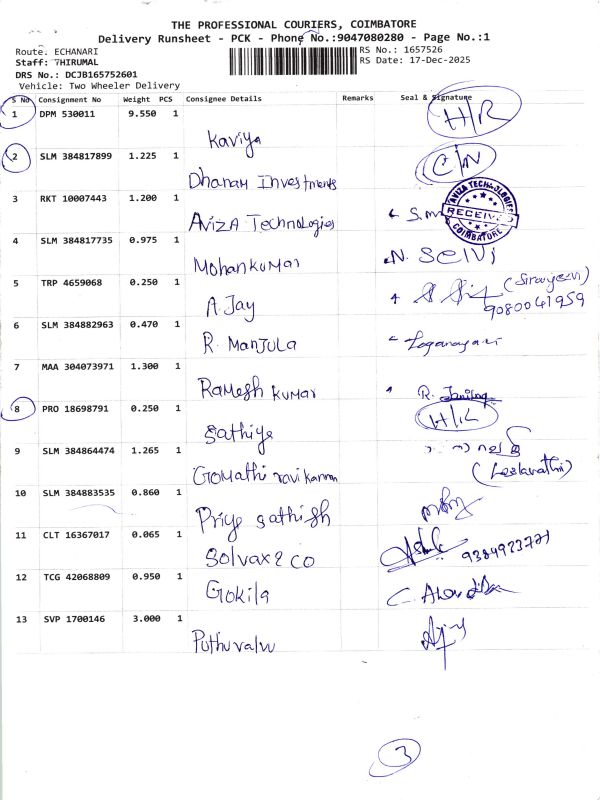 THE PROFESSIONAL COURIERS, COIMBATORE
Delivery Runsheet - PCK - Phone No.:9047080280 - Page No.:1
Route. ECHANARI RS No.: 1657526
Staff: THIRUMAL RS Date: 17-Dec-2025
DRS No.: DCJB165752601
Vehicle: Two Wheeler Delivery
S No Consignment No Weight PCS Consignee Details Remarks Seal & Signature
1 DPM 530011 9.550 1 Kaviya H/R
2 SLM 384817899 1.225 1 Dhanam Investments C/N
3 RKT 10007443 1.200 1 AVIZA Technologies AVIZA TECHNOLOGIES RECEIVED COIMBATORE
4 SLM 384817735 0.975 1 Mohankumar N. Selvi
5 TRP 4659068 0.250 1 A. Jay 9080041959
6 SLM 384882963 0.470 1 R. Manjula Loganayaki
7 MAA 304073971 1.300 1 Ramesh kumar R.
8 PRO 18698791 0.250 1 Sathiya H/R
9 SLM 384864474 1.265 1 Gomathi (Leelavathi)
10 SLM 384883535 0.860 1 Priya sathish
11 CLT 16367017 0.065 1 Solvax & co 9384923771
12 TCG 42068809 0.950 1 Gokila C.
13 SVP 1700146 3.000 1 Puthuvalvu
3